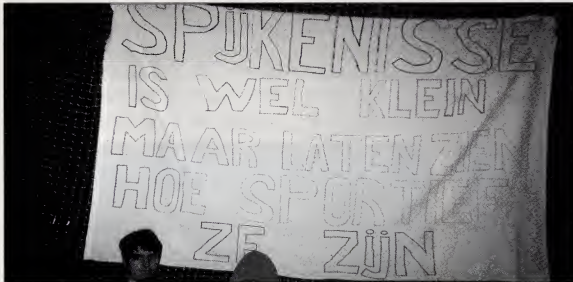 SPIJKENISSE
IS WEL KLEIN
MAAR LATEN ZIEN
HOE SPORTIEF
ZE ZIJN